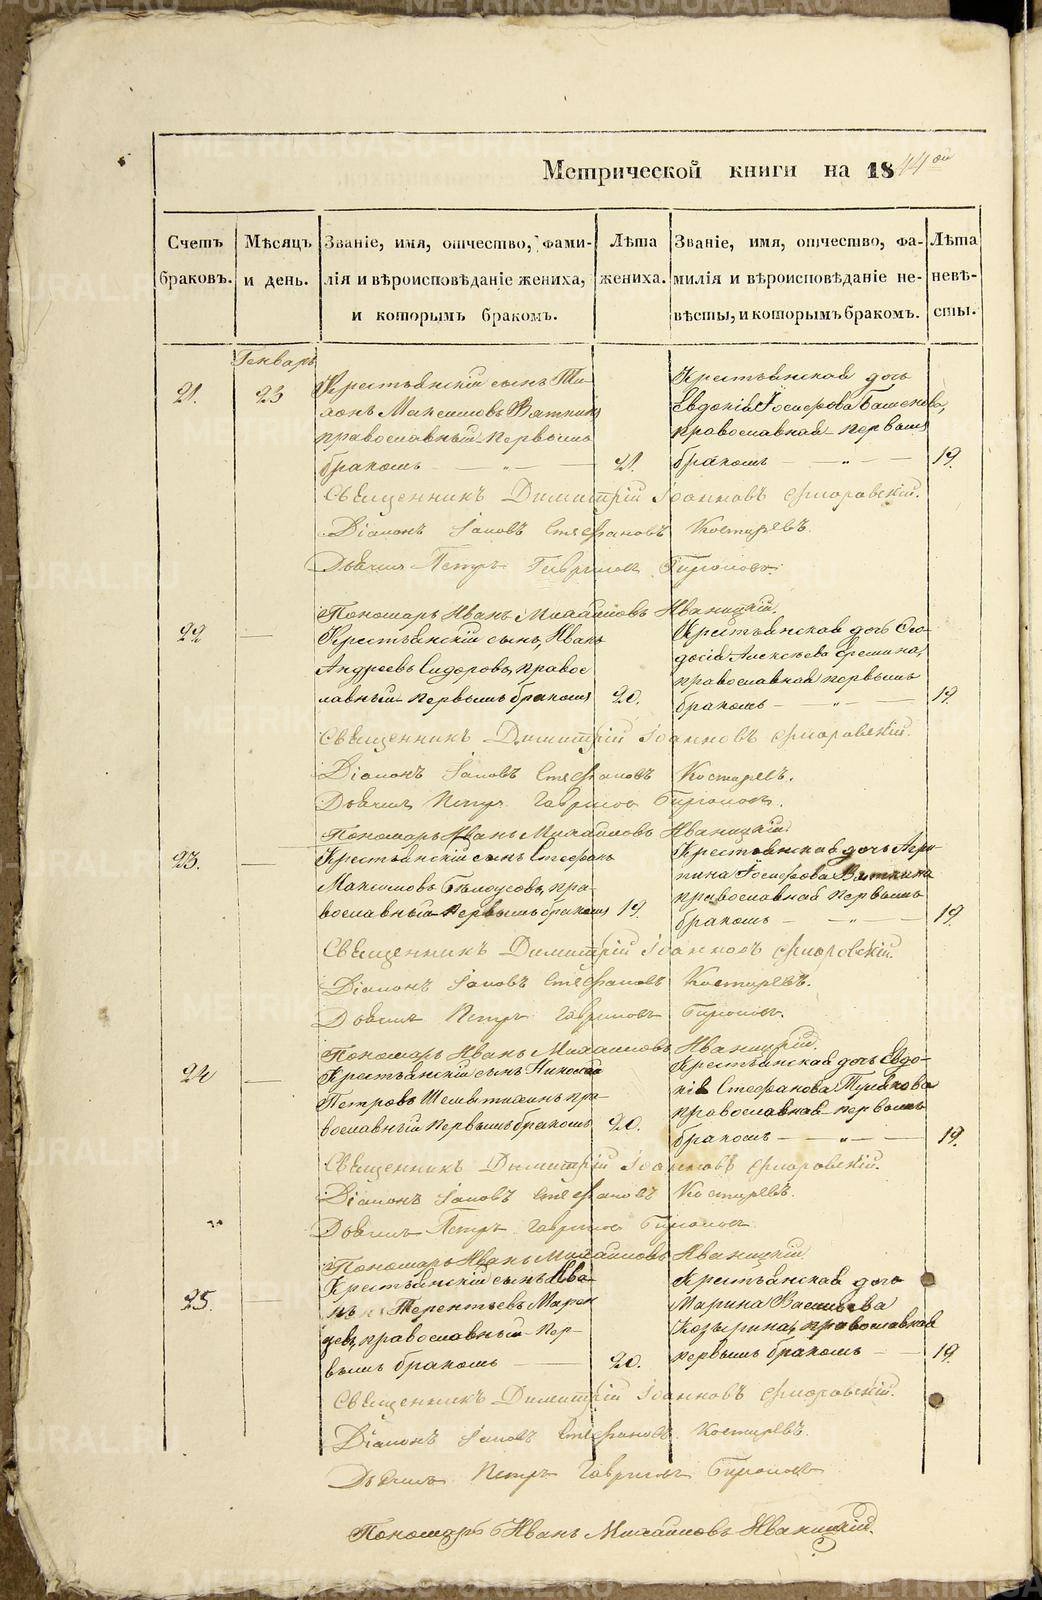 Метрической книги на 1844ой
Счетъ браковъ.
Мѣсяцъ и день.
Званіе, имя, отчество, фами-
лія и вѣроисповѣданіе жениха,
и которымъ бракомъ.
Лѣта
жениха.
Званіе, имя, отчество, фа-
милія и вѣроисповѣданіе не-
вѣсты, и которымъ бракомъ.
Лѣта
невѣ-
сты.
Генварь
21. 23
Крестьянскій сынъ Ти-
хонъ Максимовъ Вяткинъ
православный первымъ
бракомъ — „ —
21.
Крестьянская дочь
Евдокія Іосифова
православная первымъ
бракомъ — „ —
19.
Священникъ Димитрій Іоанновъ Флоровскій.
Діаконъ Іаковъ Стефановъ Костыревъ.
Дьячекъ Петръ Гавриловъ
Пономарь Иванъ Михайловъ Иваницкій.
22 —
Крестьянскій сынъ, Иванъ
Андреевъ Сидоровъ, правос
лавный первымъ бракомъ
20.
Крестьянская дочь Ѳео-
досія Алексѣева Еремина,
православная первымъ
бракомъ — „ —
19.
Священникъ Димитрій Іоанновъ Флоровскій.
Діаконъ Іаковъ Стефановъ Костыревъ.
Дьячекъ Петръ Гавриловъ
Пономарь Иванъ Михайловъ Иваницкій.
23. —
Крестьянскій сынъ Стефанъ
Максимовъ Бѣлоусовъ, пра-
вославный первымъ бракомъ
19.
Крестьянская дочь Агри-
пина Іосифова Вяткина
православная первымъ
бракомъ — „ —
19.
Священникъ Димитрій Іоанновъ Флоровскій.
Діаконъ Іаковъ Стефановъ Костыревъ.
Дьячекъ Петръ Гавриловъ
Пономарь Иванъ Михайловъ Иваницкій.
24 —
Крестьянскій сынъ Николай
Петровъ пра-
вославный первымъ бракомъ
20.
Крестьянская дочь Евдо-
кія Стефанова
православная первымъ
бракомъ — „ —
19.
Священникъ Димитрій Іоанновъ Флоровскій.
Діаконъ Іаковъ Стефановъ Костыревъ.
Дьячекъ Петръ Гавриловъ
Пономарь Иванъ Михайловъ Иваницкій
25. —
Крестьянскій сынъ Ива-
нъ Терентьевъ
православный пер-
вымъ бракомъ —
20.
Крестьянская дочь
Марина Васильева
Козырина, православная
первымъ бракомъ —
19.
Священникъ Димитрій Іоанновъ Флоровскій.
Діаконъ Іаковъ Стефановъ Костыревъ.
Дьячекъ Петръ Гавриловъ
Пономарь Иванъ Михайловъ Иваницкій.
METRIKI.GASU-URAL.RU